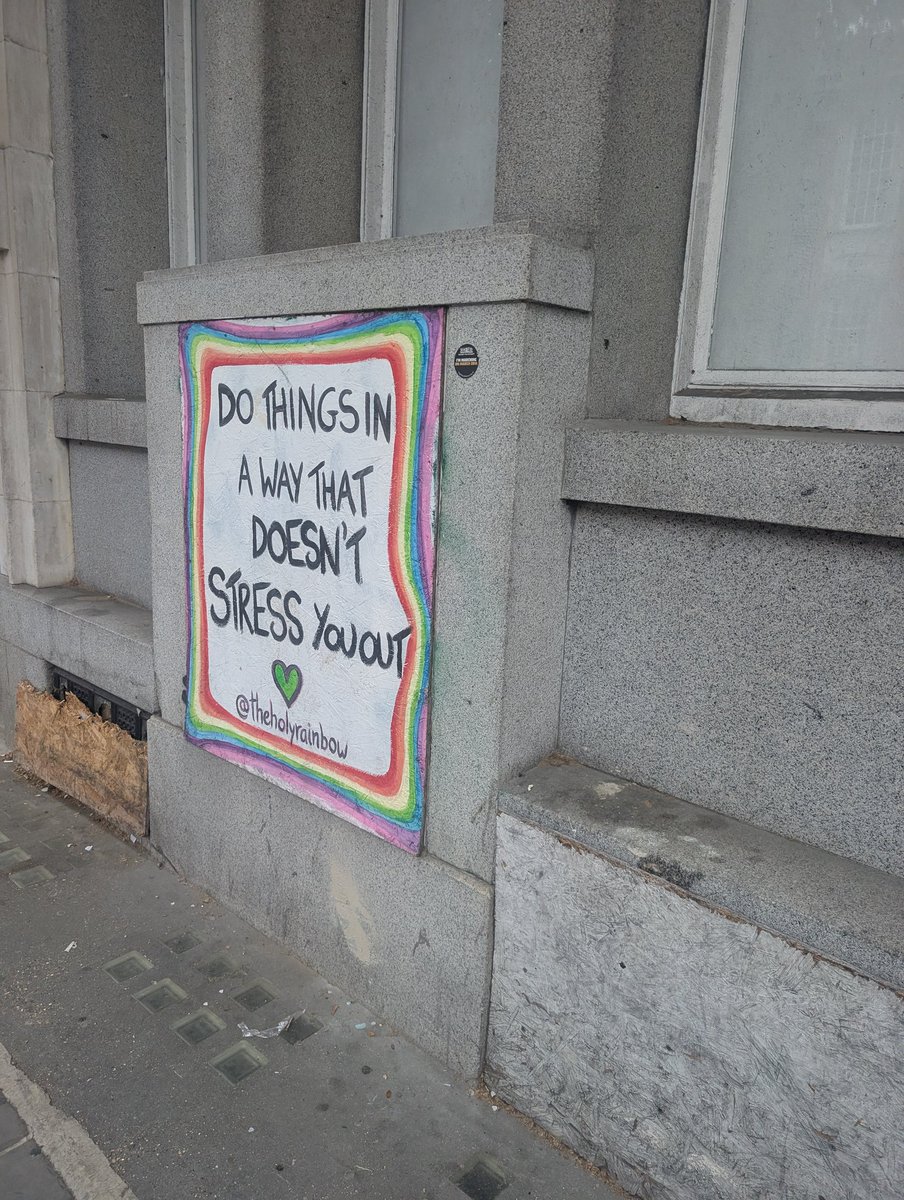 DO THINGS IN
A WAY THAT
DOESN'T
STRESS YOU OUT
@theholyrainbow